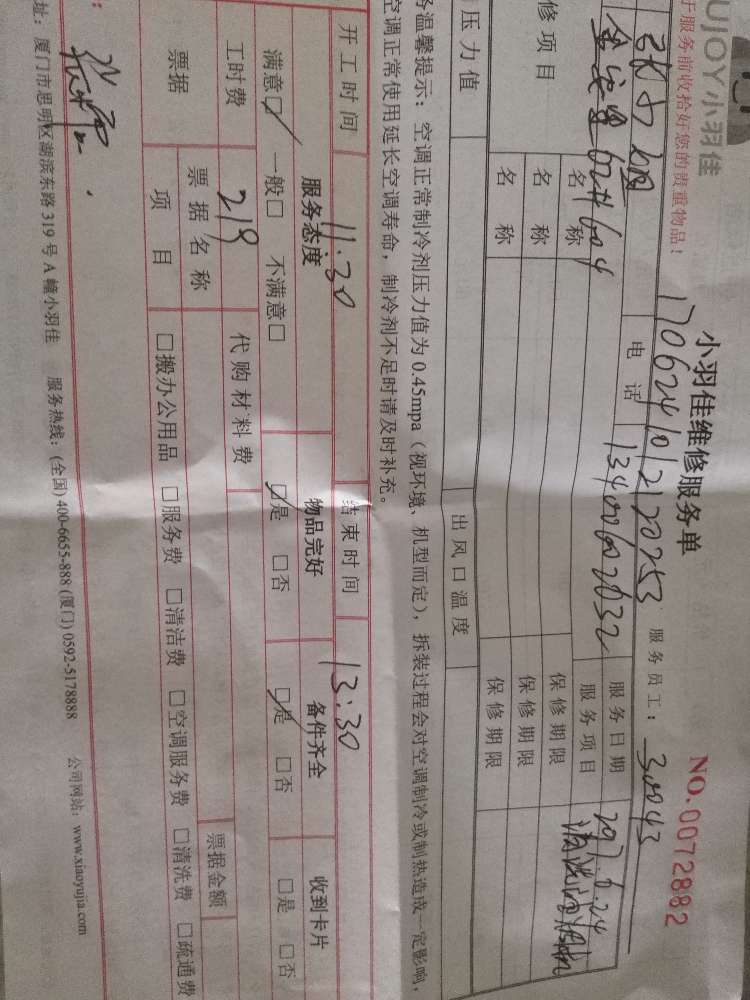 UJOY小羽佳
于服务前收拾好您的贵重物品！
小羽佳维修服务单
NO.0072882
1706241012120253 服务员工：30043
电话 13400602032 服务日期 2017.6.24
金安里62#604 服务项目
修项目 名称 保修期限
名称 保修期限
名称 保修期限
压力值 出风口温度
务温馨提示：空调正常制冷剂压力值为 0.45mpa（视环境、机型而定），拆装过程会对空调制冷或制热造成一定影响，
空调正常使用延长空调寿命，制冷剂不足时请及时补充。
开工时间 11:30 结束时间 13:30
服务态度 物品完好 备件齐全 收到卡片
满意☑ 一般□ 不满意□ ☑是 □否 ☑是 □否 □是 □否
工时费 219 代购材料费
票据 票据名称 票据金额
项目 □搬办公用品 □服务费 □清洁费 □空调服务费 □清洗费 □疏通费
址：厦门市思明区湖滨东路 319 号 A 幢小羽佳 服务热线：(全国) 400-6655-888 (厦门) 0592-5178888 公司网站：www.xiaoyujia.com